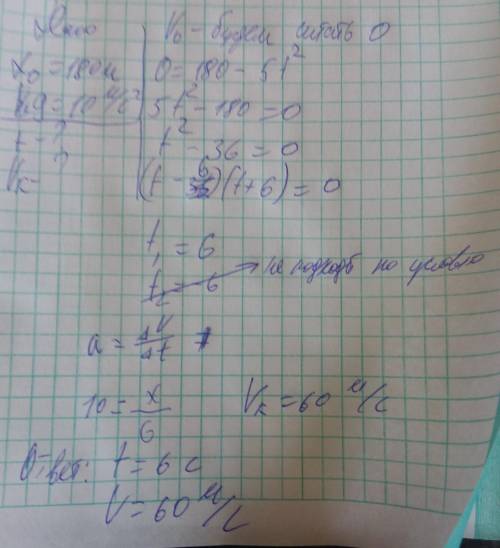 Дано
x₀ = 180м
g = 10 м/с²
t - ?
Vк - ?
V₀ - будем читать 0
0 = 180 - 5t²
5t² - 180 = 0
t² - 36 = 0
(t - 6)(t + 6) = 0
t₁ = 6
t₂ = -6 → не подходит по условию
a = ΔV/Δt
10 = x/6
Vк = 60 м/с
Ответ: t = 6 с
V = 60 м/с